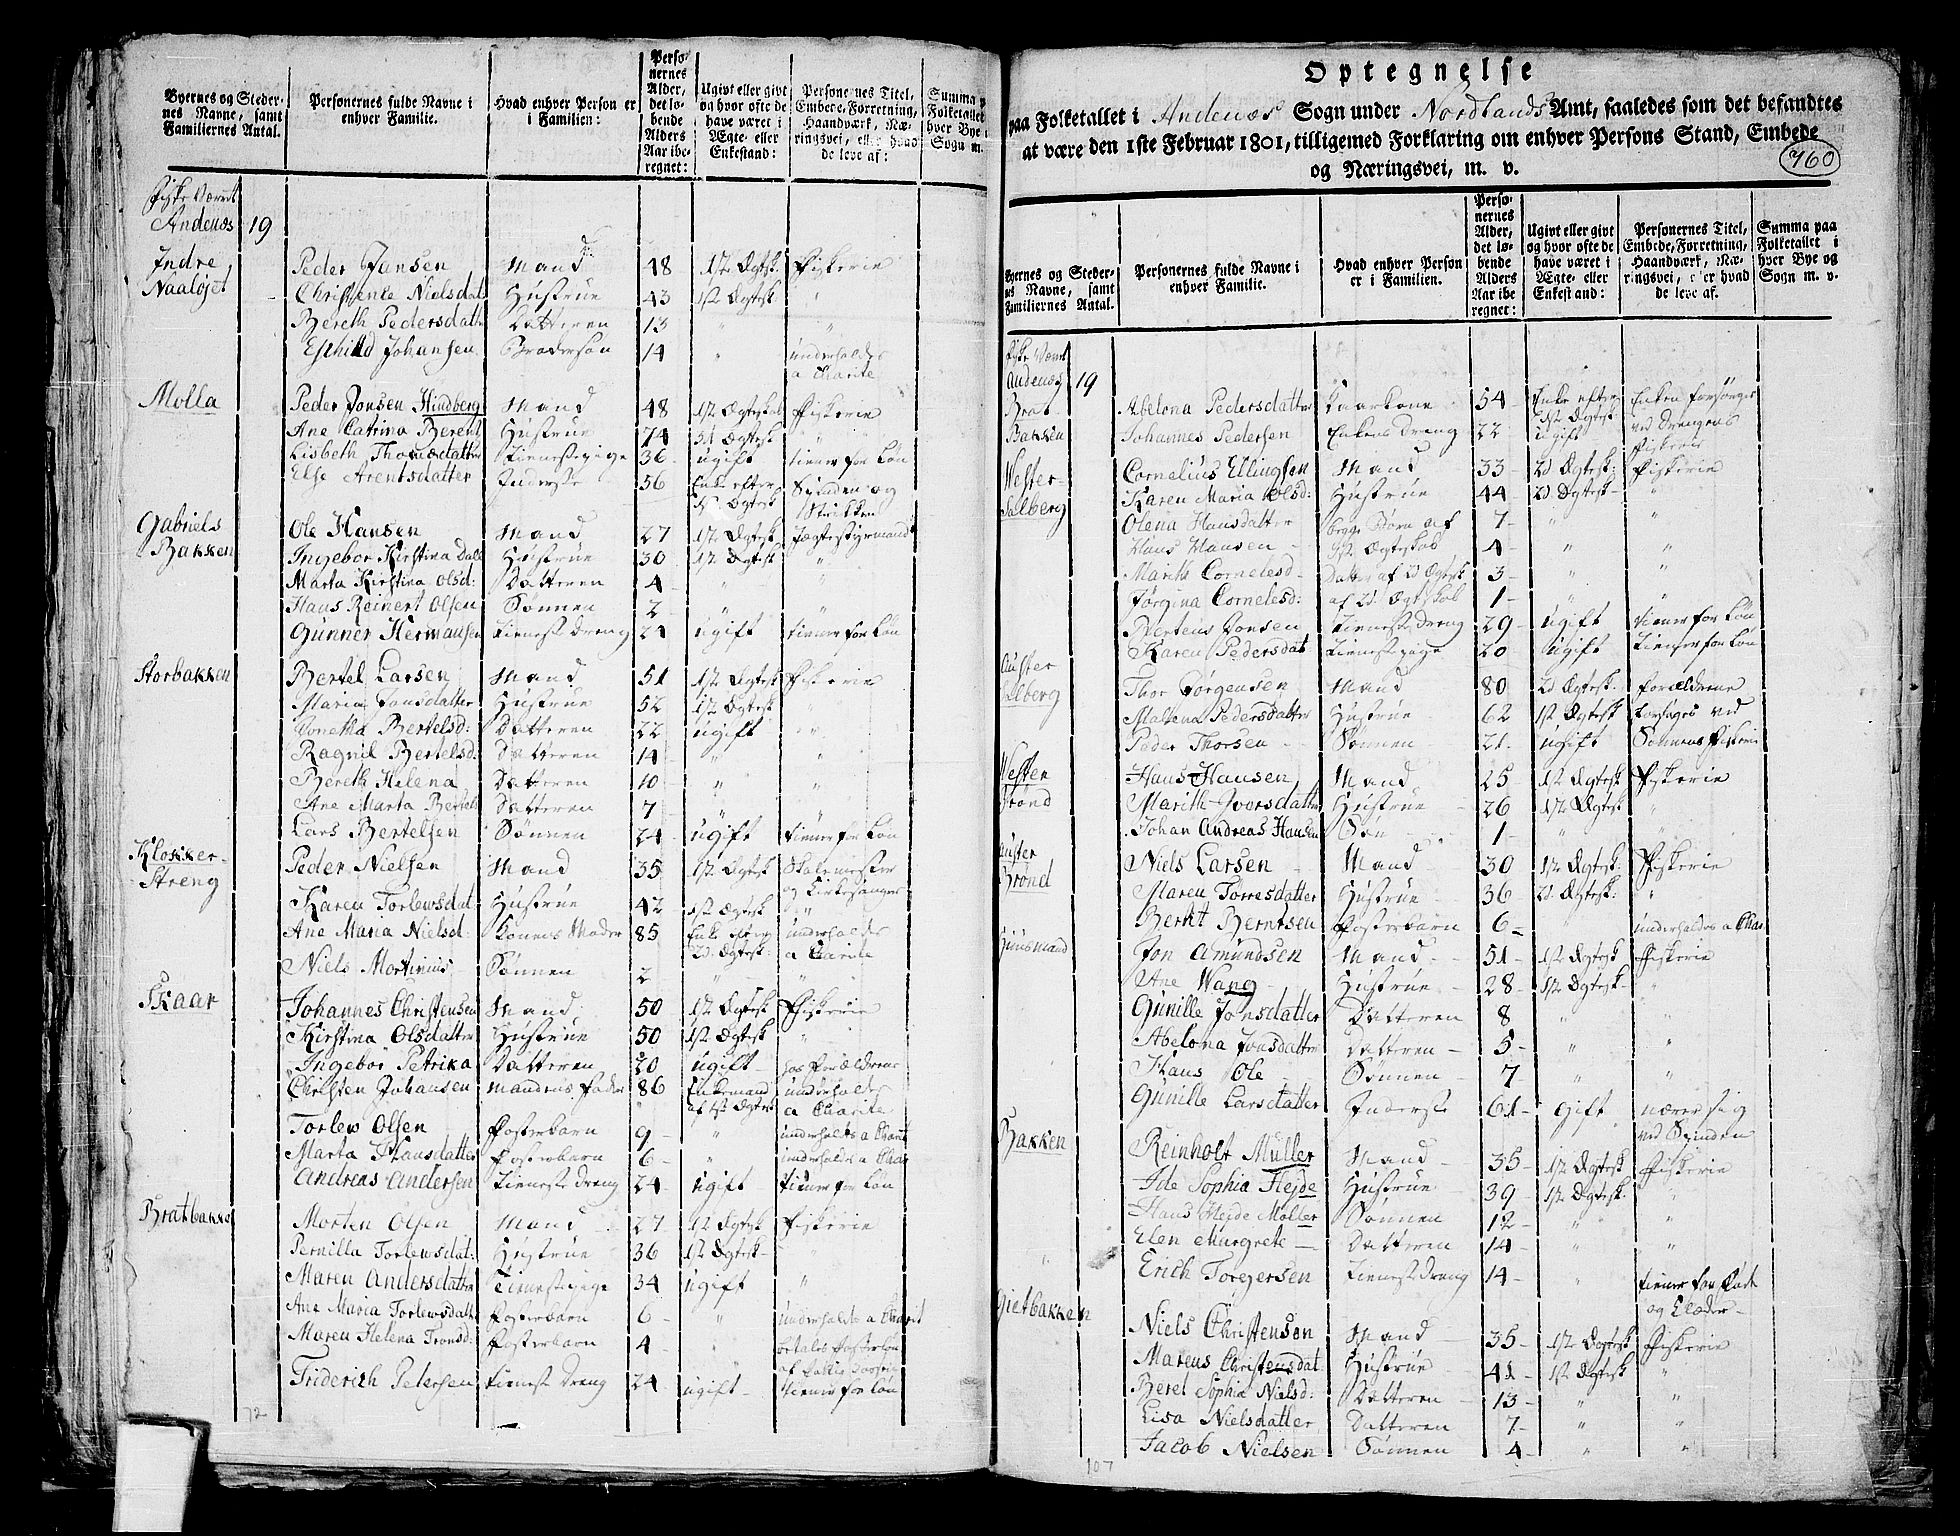 Byernes og Steder-
nes Navne, samt
Familiernes Antal.
Personernes fulde Navne i
enhver Familie.
Hvad enhver Person er
i Familien:
Perso-
nernes
Alder,
det lø-
bende
Alders
Aar ibe-
regnet:
Ugivt eller givt
og hvor ofte de
have været i
Ægte- eller
Enkestand:
Personernes Titel,
Embede, Forretning,
Haandværk, Næ-
ringsvei, eller hvad
de leve af:
Summa p
Folketallet
hver Bye
Sogn m.
Fiske Været
Andenæs 19
Indre Peder Jansen Mand 48 1st Ægtesk. Fiskerie
Naaløjet Christence Nielsdat Hustrue 43 1st Ægtesk "
Bereth Pedersdatt Datteren 13 " "
Eschild Johansen Brodersøn 14 " underholdes
a Charite
Molla Peder Jonsen Hindberg Mand 48 1st Ægteskab Fiskerie
Ane Catrina Berent Hustrue 74 3d Ægtesk "
Lisbeth Thomædatter Tienestepige 36 ugift tiener for Løn
Else Arentsdatter Inderste 56 Enke efter Spinden og
1st Ægtesk Strikken
Gabriels Ole Hansen Mand 27 1st Ægtesk Jægtestyrmand
Bakken Ingebor Kirstina Dall Hustrue 30 1st Ægtesk "
Marta Kirstina Olsd: Datteren 4 " "
Hans Reinert Olsen Sønnen 2 " "
Gunner Hermansen Tieneste dreng 24 ugift tiener for Løn
Storbakken Bertel Larsen Mand 51 1st Ægtesk Fiskerie
Maria Jonsdatter Hustrue 52 1st Ægtesk "
Jonetha Bertelsd: Datteren 22 ugift "
Ragnil Bertelsd: Datteren 14 " "
Bereth Helena Datteren 10 " "
Ane Marta Bertels Datteren 7 " "
Lars Bertelsen Sønnen 24 ugift tiener for Løn
Klokker- Peder Nielsen Mand 35 1st Ægtesk Skolemester
Streng og Kirkesanger
Karen Torlewsdat Hustrue 42 1st Ægtesk "
Ane Maria Nielsd. Konens Moder 85 Enke underholdes
2d. Ægtesk. a Charite
Niels Mortinius Sønnen 2 " "
Skaar Johannes Christensen Mand 50 1st Ægtesk Fiskerie
Kirstina Olsdatter Hustrue 50 1st Ægtesk "
Ingebor Petrika Datteren 20 ugift hos Forældrene
Christen Johansen Mandens Fader 86 Enkemand underholdes
af 1st Ægtesk a Charite
Torlew Olsen Fosterbarn 9 " underholdes a Charit
Marta Hansdatter Fosterbarn 6 " underholdes a Char
Andreas Andersen Tieneste dreng 24 ugift tiener for Løn
Bratbakke Morten Olsen Mand 27 1st Ægtesk Fiskerie
Pernilla Torlewsdat: Hustrue 36 1st Ægtesk "
Maren Andersdatter Tienestepige 34 ugift "
Ane Maria Torlewsdatt Fosterbarn 6 " underholdes a Charit
Maren Helena Tronsd: Fosterbarn 4 " betales Fosterløn
af Fattig
Friderich Petersen Tieneste dreng 24 ugift tiener for Løn
72
Optegnelse
paa Folketallet i Andenæs Sogn under Nordlands Amt, saaledes som det befandtes
at være den 1ste Februar 1801, tilligemed Forklaring om enhver Persons Stand, Embede
og Næringsvei, m. v.
760
Byernes og Steder-
nes Navne, samt
Familiernes Antal.
Personernes fulde Navne i
enhver Familie.
Hvad enhver Person
er i Familien.
Perso-
nernes
Alder,
det lø-
bende
Alders
Aar ibe-
regnet:
Ugivt eller givt
og hvor ofte de
have været i
Ægte- eller
Enkestand:
Personernes Titel,
Embede, Forretning,
Haandværk, Næ-
ringsvei, eller hvad
de leve af.
Summa paa
Folketallet i
hver Bye og
Sogn m. v.
Fiske Været
Andenæs 19
Brat- Abelona Pedersdatter Kaarkone 54 Enke efter Enken forsørges
1st Ægtesk ved Drengens
Bakken Johannes Pedersen Enkens dreng 22 ugift Fiskerie
Wester- Cornelius Ellingsen Mand 33 2d Ægtesk: Fiskerie
Salberg Karen Maria Olsd: Hustrue 44 2d Ægtesk "
Olena Hansdatter begge Børn af 7 " "
Hans Hansen 1st. Ægteskab 4 " "
Marith Cornelesd Datter af 2d Ægtesk 3 " "
Jørgina Cornelesd: af 2d. Ægteskab 1 " "
Bertens Jonsen Tieneste dreng 29 ugift tiener for Løn
Karen Pedersdat Tienestepige 20 ugift tiener for Løn
Auster Thor Jørgensen Mand 80 2d Ægtesk. Forældrene
Salberg Malena Pedersdatter Hustrue 62 1st Ægtesk forsørges ved
Peder Thorsen Sønnen 21 ugift Sønnens Fiskerie
Wester Hans Hansen Mand 25 1st Ægtesk Fiskerie
Brønd Marith Jvorsdatter Hustrue 26 1st Ægtesk "
Johan Andreas Hansen Søn 1 " "
Auster Niels Larsen Mand 30 1st Ægtesk: Fiskerie
Brønd Maren Torresdatter Hustrue 36 2d. Ægtesk: "
Bernt Berntsen Fosterbarn 6 " underholdes a Char
Huusmand Jon Amundsen Mand 51 1st Ægtesk Fiskerie
Ane Wang Hustrue 28 1st Ægtesk "
Gunille Jonsdatter Datteren 8 " "
Abelona Jonsdatter Datteren 5 " "
Hans Ole Sønnen 7 " "
Gunille Larsdatter Inderste 61 gift nærer sig
ved Spinden
Bakken Reinholt Müller Mand 35 1st Ægtesk Fiskerie
Ide Sophia Hejde Hustrue 39 1st Ægtesk. "
Hans Hejde Møller Sønnen 12 " "
Elen Margrete Datteren 14 " "
Erich Toregersen Tieneste dreng 14 " tiener for Føde
og Clæder
Gietbakken Niels Christensen Mand 35 1st Ægtesk Fiskerie
Mareus Christensdat Hustrue 41 1st Ægtesk "
Beret Sophia Nielsd: Datteren 13 " "
Lisa Nielsdatter Datteren 7 " "
Jacob Nielsen Sønnen 4 " "
107